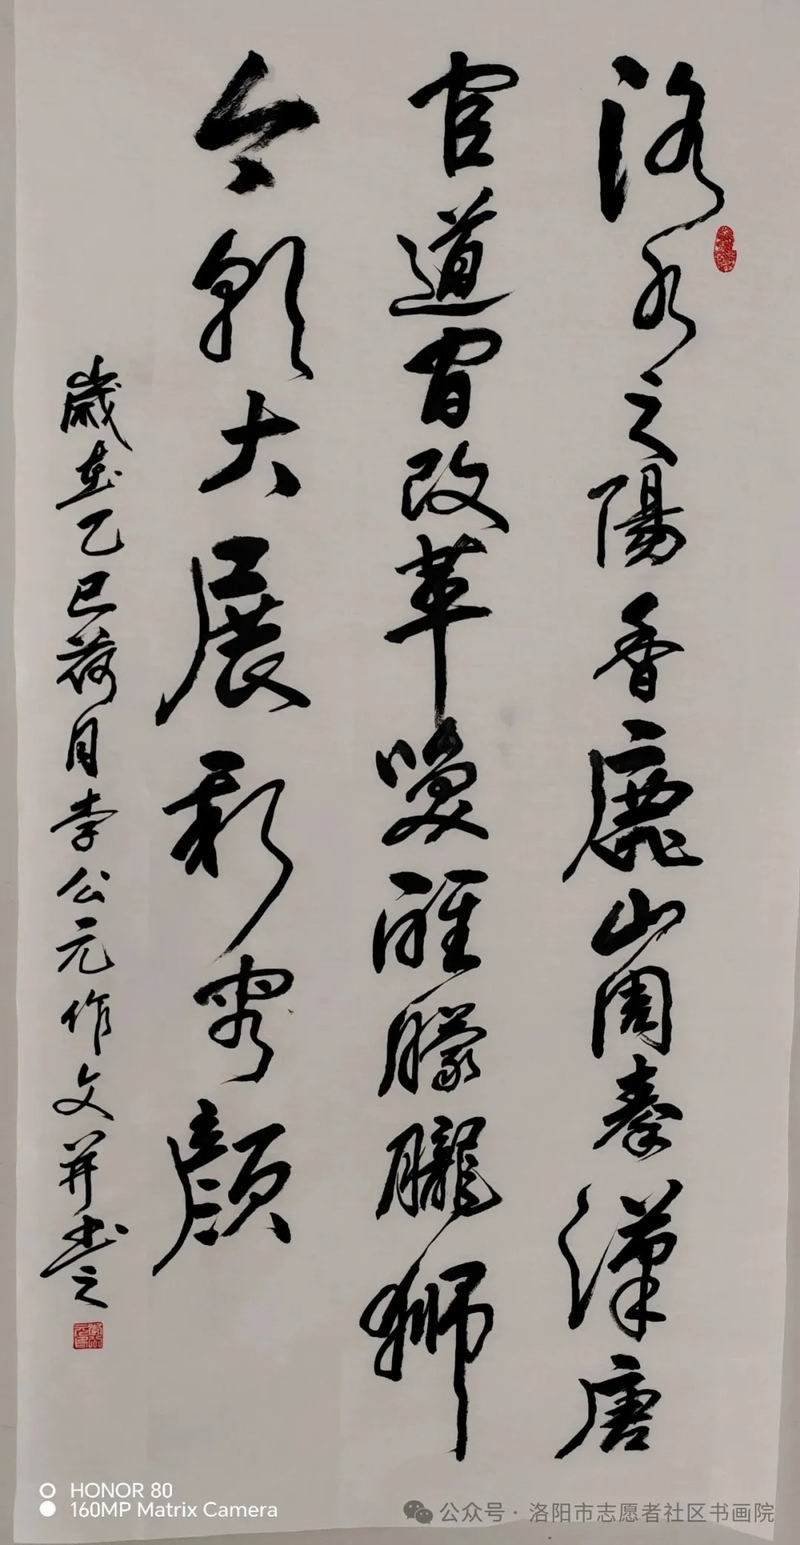 洛水之陽香鹿山周秦漢唐
官道間改革喚醒朦朧獅
今朝大展新容顏
歲在乙巳荷月李公元作文并書之
HONOR 80
160MP Matrix Camera
公众号·洛阳市志愿者社区书画院